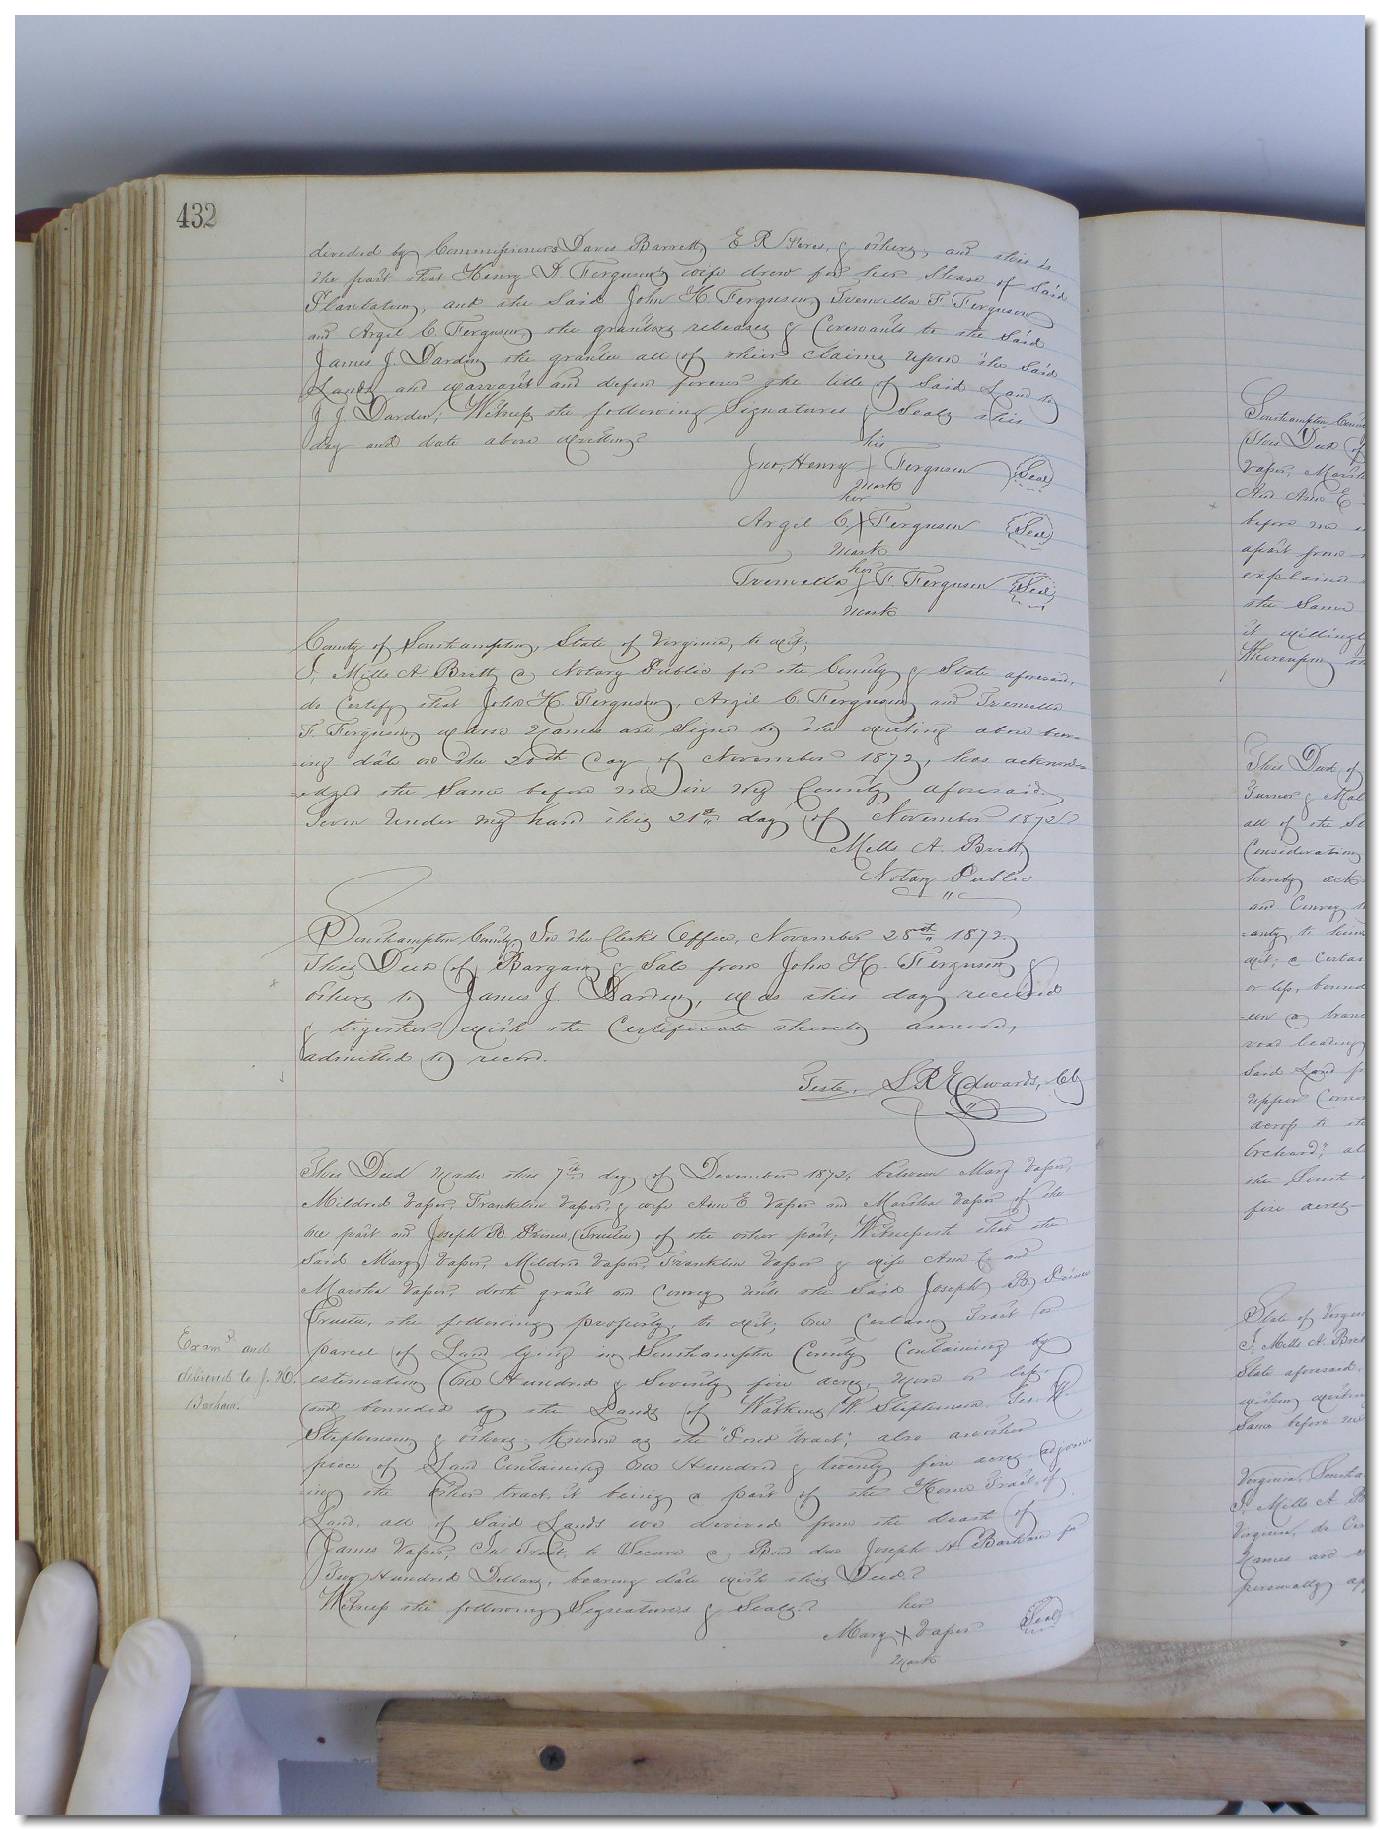 432
divided by Commissioners Davis Barrett, E R & others, and this is
the part that Henry D. Ferguson's wife drew for her Share of Said
Plantation, and the Said John H. Ferguson, Tremella F. Ferguson
and Argil C. Ferguson the grantors releases & Covenants to the Said
James J. Darden the grantee all of their claims upon the Said
Lands and warrant and defen forever the title of Said Land to
J. J. Darden; Witness the following Signatures & Seals this
day and date above written.
his
Jno, Henry X Ferguson Seal
Mark
her
Argil C. X Ferguson Seal
Mark
her
Tremella X F. Ferguson Seal
Mark
County of Southampton, State of Virginia, to wit;
I, Mills A. Britt a Notary Public for the County & State aforesaid,
do Certify that John H. Ferguson, Argil C. Ferguson and Tremella
F. Ferguson whose Names are Signed to the writing above bear-
-ing date on the 20th day of November 1872, has acknowl-
-edged the Same before me in my County aforesaid.
Given Under my hand this 21st day of November 1872
Mills A. Britt,
Notary Public
Southampton County, In the Clerk's Office, November 28th 1872.
This Deed of Bargain & Sale from John H. Ferguson &
others to James J. Darden, was this day received
& together with the Certificate thereto annexed,
admitted to record.
Teste, L R Edwards, Clk
This Deed Made this 7th day of December 1872, between Mary Vaper,
Mildred Vaper, Franklin Vaper, & wife Ann E Vaper and Martha Vaper of the
one part and Joseph B. Prince, (Trustee) of the other part; Witnesseth that the
Said Mary Vaper, Mildred Vaper, Franklin Vaper & wife Ann E. and
Martha Vaper, doth grant and Convey unto the Said Joseph B. Prince
Trustee, the following property, to wit; One Certain Tract or
parcel of Land lying in Southampton County Containing by
estimation One Hundred & Seventy five acres, more or less,
and bounded by the Lands of Watkins W. Stephenson, Geo. W.
Stephenson & others, Known as the "Pond tract"; also another
piece of Land Containing One Hundred & twenty five acres adjoin-
ing the other tract, it being a part of the Home Tract of
Land, all of Said Lands we derived from the death of
James Vaper, In Trust, to Secure a Bond due Joseph H. Barham for
Hundred Dollars, bearing date with this Deed.
Witness the following Signatures & Seals.
her
Mary X Vaper Seal
Mark
Exam'd and
delivered to J. H.
Barham.
Southampton Coun
This Deed of
Vaper, Marth
And Ann E
before me
apart from
explained
the Same
it willingl
Whereupon
This Deed of
Turner &
all of the
Consideration
hereby ack
and Convey
-anty, to
wit; a Certai
or less, bound
a bran
road leading
Said Land
upper Corne
across to
Orchard"; al
the South
five acres-
State of Virgin
I, Mills A. Brit
State aforesaid,
writing
Same before me
Virginia, Southa
I, Mills A. B
Virginia, do Cer
Names are
personally ap